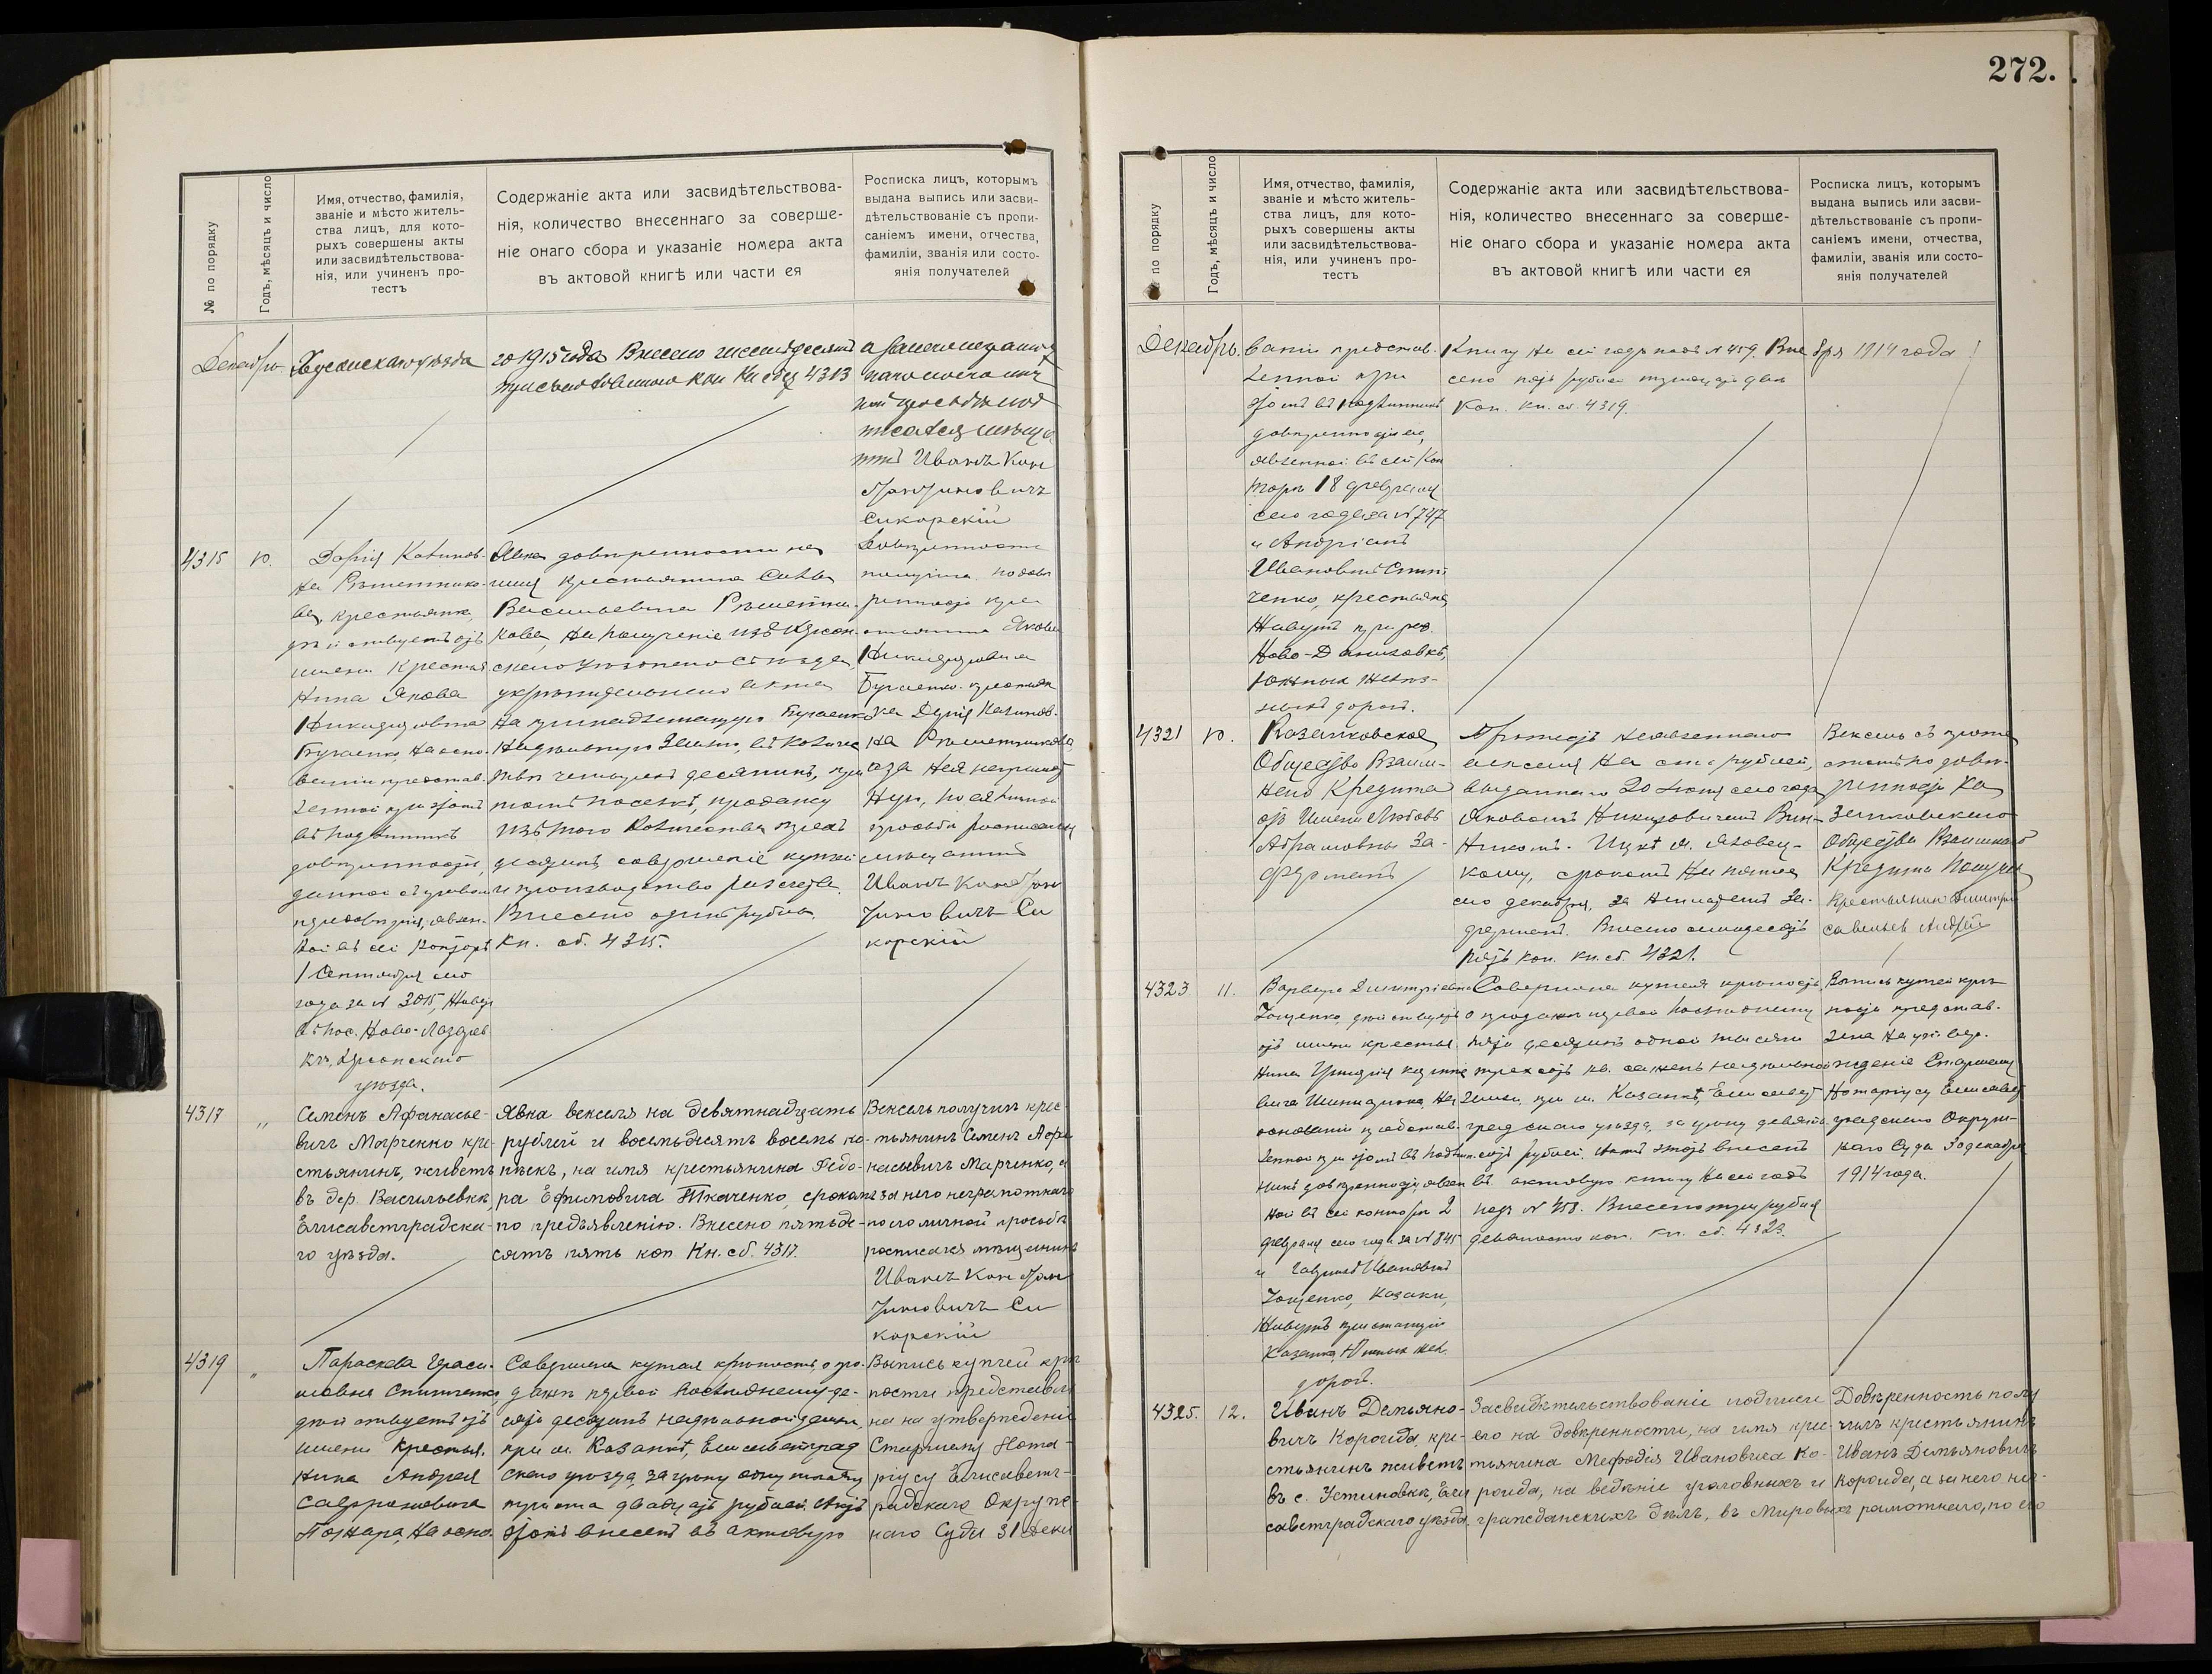 272.
№ по порядку
Годъ, мѣсяцъ и число
Имя, отчество, фамилія,
званіе и мѣсто житель-
ства лицъ, для кото-
рыхъ совершены акты
или засвидѣтельствова-
нія, или учиненъ про-
тестъ
Содержаніе акта или засвидѣтельствова-
нія, количество внесеннаго за соверше-
ніе онаго сбора и указаніе номера акта
въ актовой книгѣ или части ея
Росписка лицъ, которымъ
выдана выпись или засви-
дѣтельствованіе съ пропи-
саніемъ имени, отчества,
фамиліи, званія или состо-
янія получателей
Декабрь.
уѣзда
го 1915 года Внесено шестьдесятъ
три коп Кн сбц 4313
подпи
Иванъ Кон
стантиновичъ
Сикорскій
4315
10.
Дарія
на Рѣшетнико-
ва, крестьянка,
дѣйствуетъ отъ
имени крестья
нина Якова
Никифоровича
Бугаенко, на осно-
ваніи представ-
ленной при этомъ
въ подлинникѣ
довѣренности,
данной съ правом
передовѣрія, явлен-
ной въ сей конторѣ
1 Сентября сего
года за № 3015, живут
въ пос. Ново-Лазарев
кѣ, Херсонскаго
уѣзда.
Явка довѣренности на
имя крестьянина Саввы
Васильевича Рѣшетни-
кова, на полученіе изъ Херсон-
скаго уѣзднаго съѣзда
укрѣпительнаго акта
на принадлежащую Бугаенко
надѣльную землю, въ количе
ствѣ четырехъ десятинъ, при
томъ поселкѣ, продажу
изъ того количества трехъ
десятинъ совершеніе купчей
и производство разсчета.
Внесено одинъ рубль.
Кн. сб. 4315.
Довѣренность
получила по довѣ
ренности крес
тьянина Якова
Никифоровича
Бугаенко крестьян
ка Дарія
на Рѣшетникова
а за нея неграмот
ную, по ея личной
просьбѣ росписался
мѣщанинъ
Иванъ Констан
тиновичъ Си
корскій
4317
"
Семенъ Афанасье-
вичъ Марченко кре-
стьянинъ, живетъ
въ дер. Васильевкѣ,
Елисаветградска-
го уѣзда.
Явка векселя на девятнадцать
рублей и восемьдесятъ восемь ко-
пѣекъ, на имя крестьянина Федо-
ра Ефимовича Ткаченко, срокомъ
по предъявленію. Внесено пятьде-
сятъ пять коп. Кн. сб. 4317.
Вексель получилъ крес-
тьянинъ Семенъ Афа
насьевичъ Марченко, а
за него неграмотнаго
по его личной просьбѣ
росписался мѣщанинъ
Иванъ Констан
тиновичъ Си
корскій
4319
"
Параскева Гераси-
мовна Спинченко,
дѣйствуетъ отъ
имени крестья-
нина Андрея
Сафроновича
Пожара, на осно-
Совершена купчая крѣпость, о про-
дажѣ первой послѣднему де-
сяти десятинъ надѣльной земли,
при м. Казанкѣ, Елисаветград
скаго уѣзда, за цѣну одну тысячу
триста двадцать рублей. Актъ
этотъ внесенъ въ актовую
Выпись купчей крѣ
пости представле
на на утвержденіе
Старшему Нота-
ріусу Елисавет-
градскаго Окруж-
наго Суда 31 Дека
№ по порядку
Годъ, мѣсяцъ и число
Имя, отчество, фамилія,
званіе и мѣсто житель-
ства лицъ, для кото-
рыхъ совершены акты
или засвидѣтельствова-
нія, или учиненъ про-
тестъ
Содержаніе акта или засвидѣтельствова-
нія, количество внесеннаго за соверше-
ніе онаго сбора и указаніе номера акта
въ актовой книгѣ или части ея
Росписка лицъ, которымъ
выдана выпись или засви-
дѣтельствованіе съ пропи-
саніемъ имени, отчества,
фамиліи, званія или состо-
янія получателей
Декабрь.
ваніи представ-
ленной при
этомъ въ подлинникѣ
довѣренности,
явленной въ сей Кон
торѣ 18 февраля
сего года за № 747
и
Ивановичъ Спин
ченко, крестьяне,
живутъ при раз.
Ново-Даниловкѣ,
Южныхъ желѣз-
ныхъ дорогъ.
Книгу на сей годъ подъ № 459. Вне
сено пять рублей тридцать двѣ
коп. Кн. сб. 4319.
бря 1914 года
4321
10.
Казанковское
Общество Взаим-
наго Кредита
отъ имени Любовь
Абрамовны За-
Протестъ неявленнаго
векселя на сто рублей,
выданнаго 20 Іюля сего года
Яковомъ Никифоровичемъ Вин-
никомъ. Ицкѣ М. Язовец-
кому, срокомъ на пятое
сего декабря, за неплатежъ За-
Внесено семьдесятъ
пять коп. Кн. сб. 4321.
Вексель съ проте
стомъ по довѣ-
ренности Ка
занковскаго
Общества Взаимнаго
Кредита получилъ
Крестьянинъ Дмитрій
Савельев
4323
11.
Варвара Дмитріевна
Зощенко, дѣйствуетъ
отъ имени крестья-
нина
вича на
основаніи представ-
ленной при этомъ въ подлин-
никѣ довѣренности, явлен
ной въ сей конторѣ 2
февраля сего года за № 845
и Гавріилъ Ивановичъ
Зощенко, Казаки,
живутъ при станціи
Казанка, Южныхъ жел.
дорогъ.
Совершена купчая крѣпость,
о продажѣ первой послѣднему
пяти десятинъ одной тысячи
трехсотъ кв. сажень надѣльной
земли, при м. Казанкѣ, Елисавет
градскаго уѣзда, за цѣну девять
сотъ рублей. Актъ этотъ внесенъ
въ актовую книгу на сей годъ
подъ № 458. Внесено три рубля
девяносто коп. Кн. сб. 4323.
Выпись купчей крѣ-
пости представ-
лена на утвер-
жденіе Старшему
Нотаріусу Елисавет
градскаго Окруж-
наго Суда 30 декабря
1914 года.
4325.
12.
Иванъ Демьяно-
вичъ Короида, кре-
стьянинъ живетъ
въ с. Устиновкѣ, Ели
саветградскаго уѣзда.
Засвидѣтельствованіе подписи
его на довѣренности, на имя кре-
стьянина Мефодія Ивановича Ко-
роида, на веденіе уголовныхъ и
гражданскихъ дѣлъ, въ Мировыхъ
Довѣренность полу
чилъ крестьянинъ
Иванъ Демьяновичъ
Короида, а за него не-
грамотнаго, по его